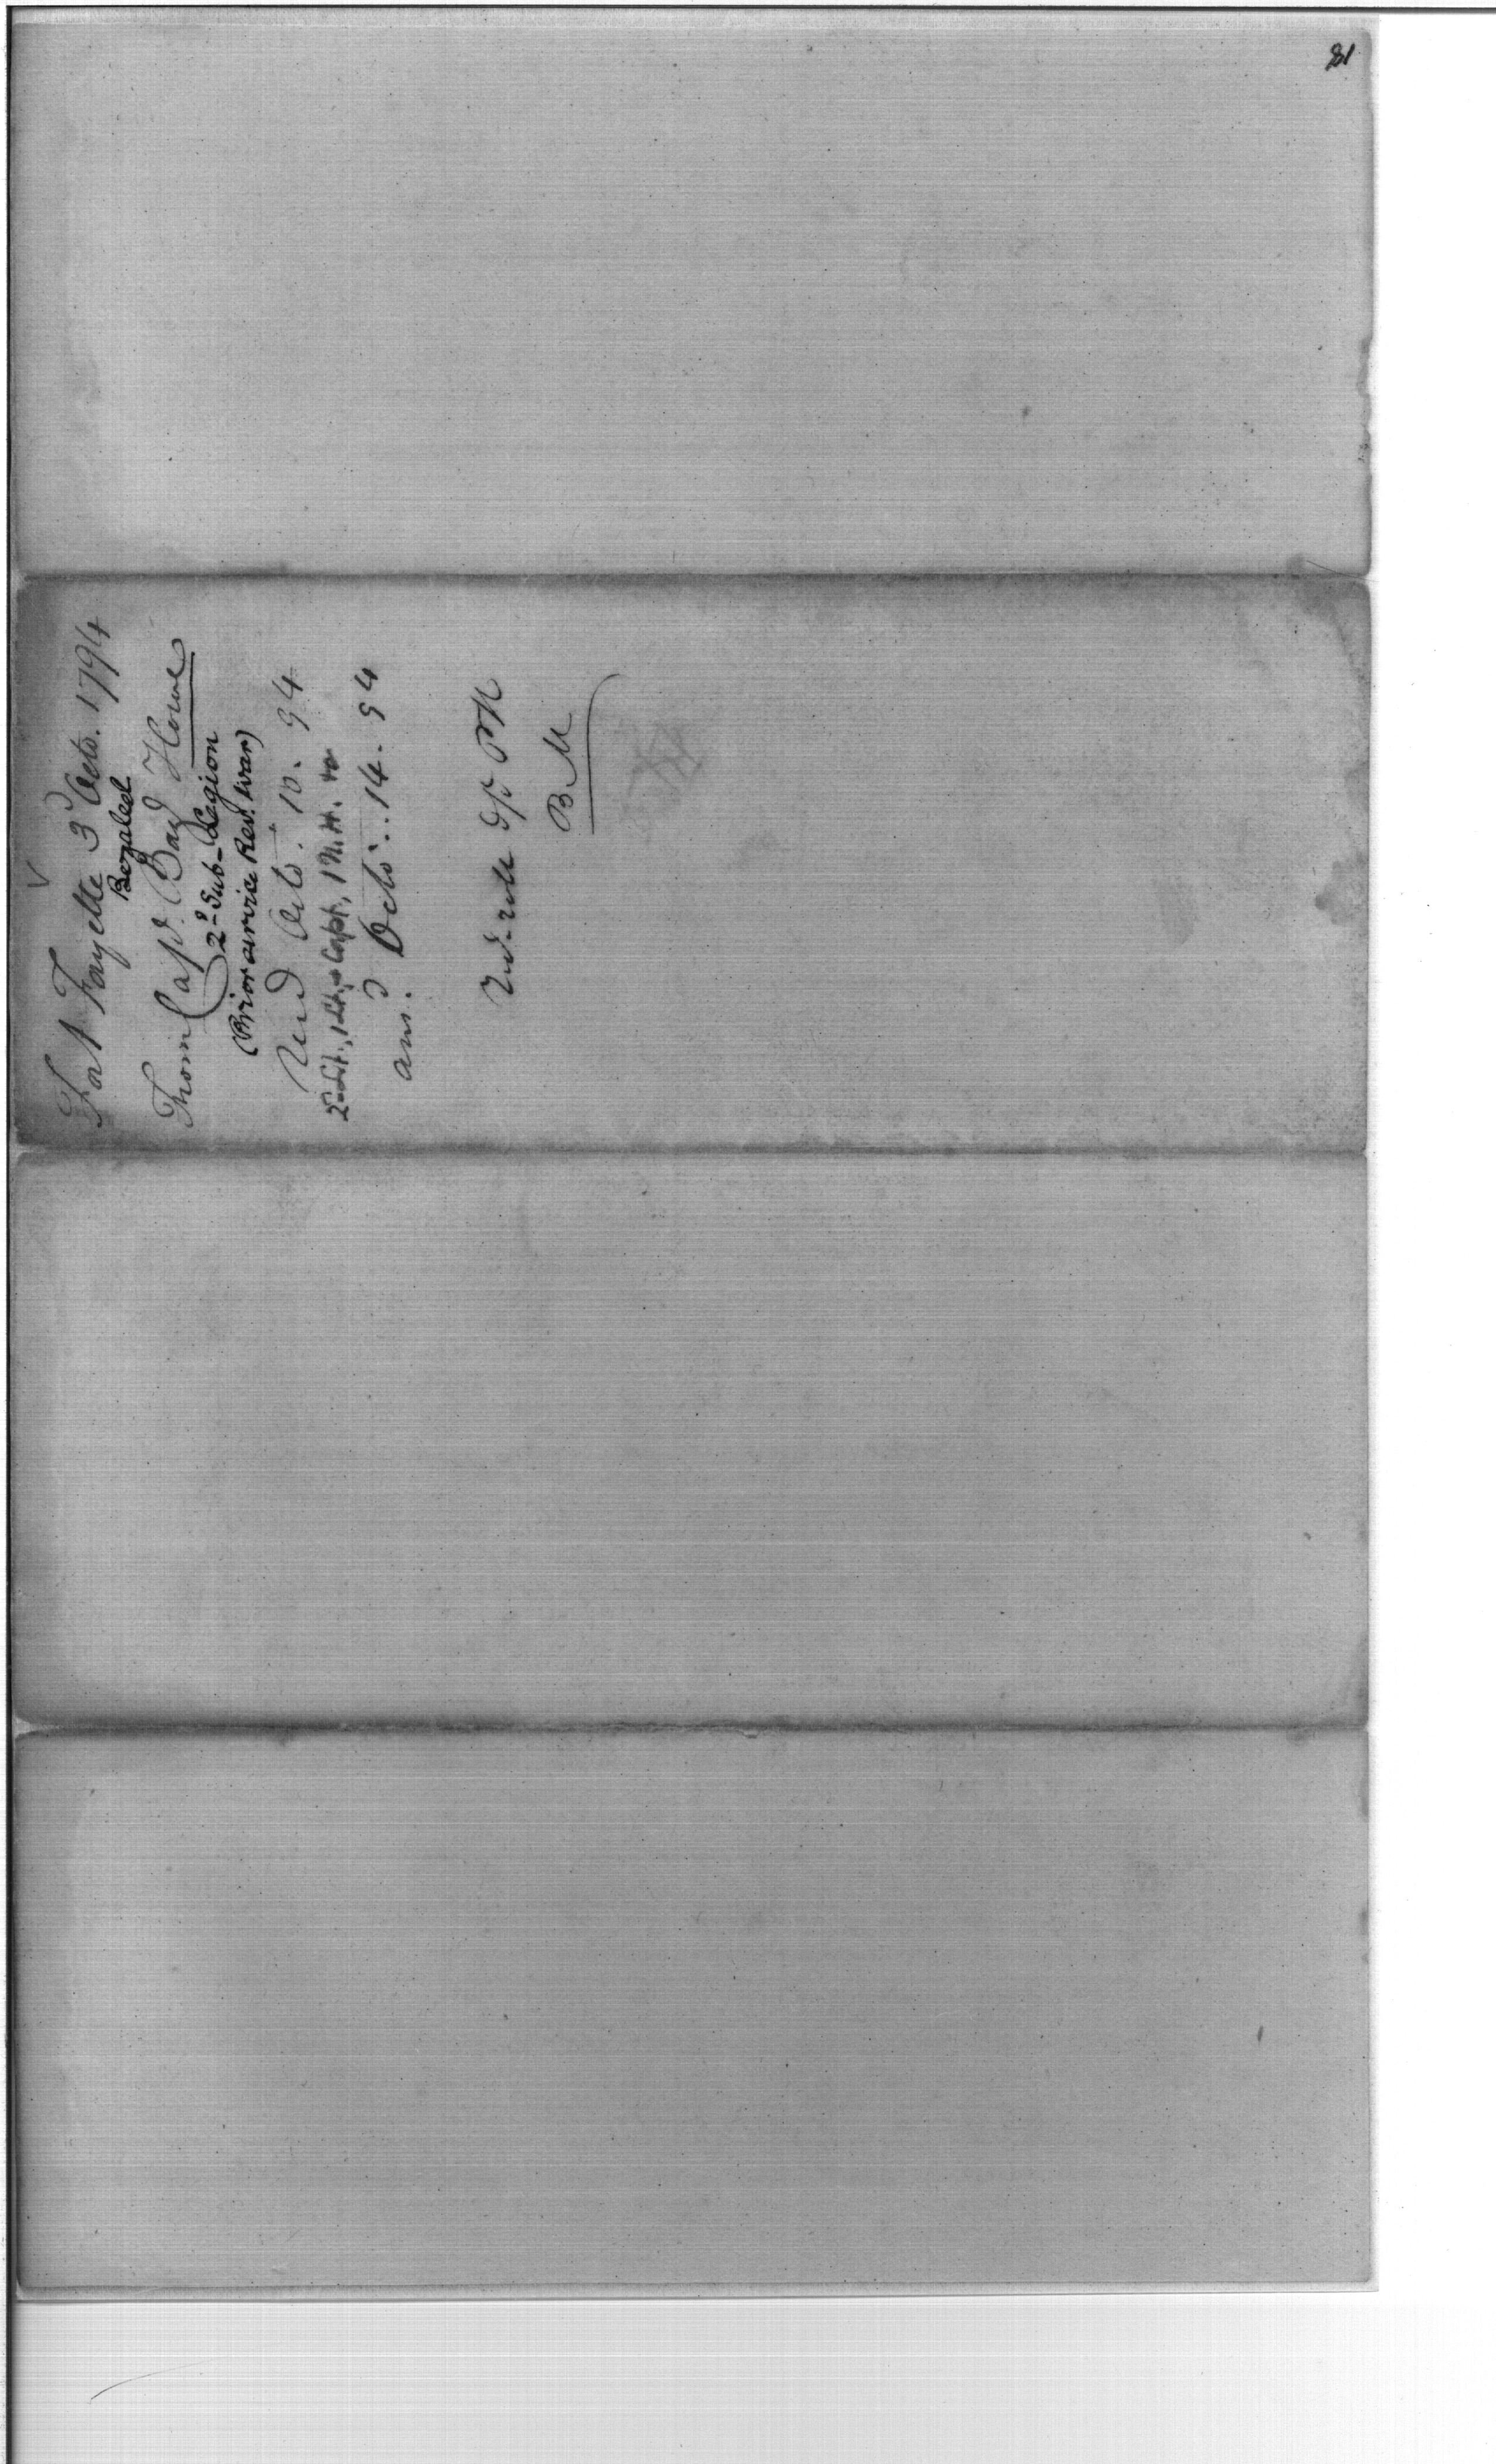 81
Fort Fayette 3d Octo. 1794
Bezaleel
From Capt. Baz Howe
2d Sub-Legion
(Prior service Rev. War)
Recd Octo. 10. 94
2-Lt., 1 Lt., & Capt., 1 N.H. to
ansd Octo. 14. 94
B M